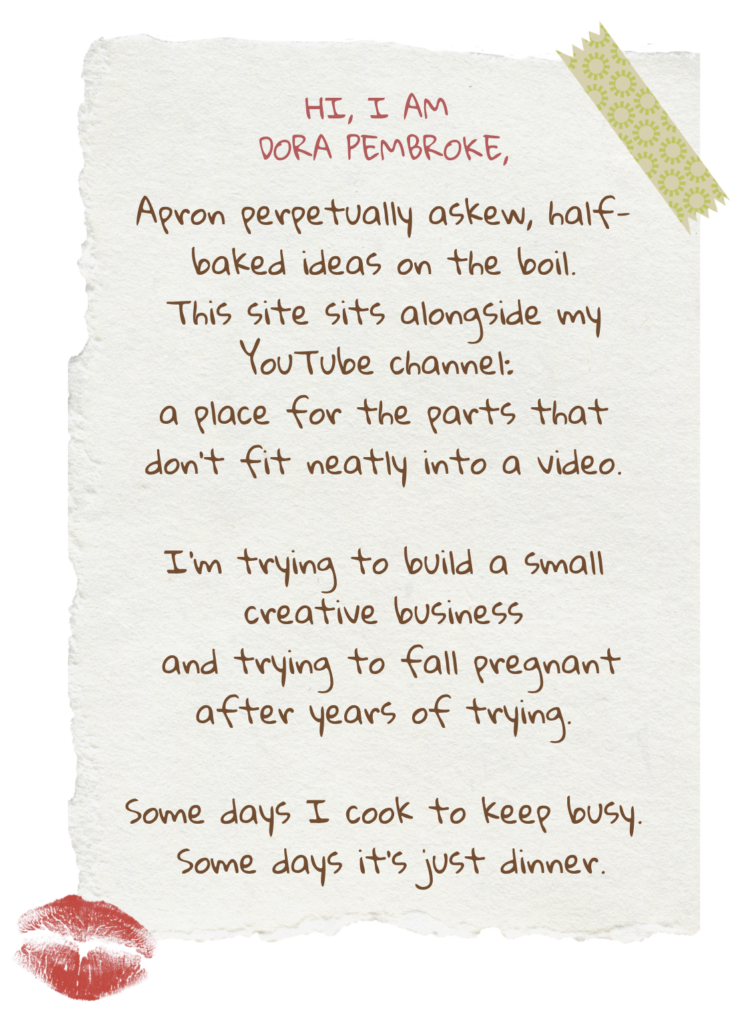 HI, I AM
DORA PEMBROKE,
Apron perpetually askew, half-
baked ideas on the boil.
This site sits alongside my
YouTube channel:
a place for the parts that
don't fit neatly into a video.
I'm trying to build a small
creative business
and trying to fall pregnant
after years of trying.
Some days I cook to keep busy.
Some days it's just dinner.